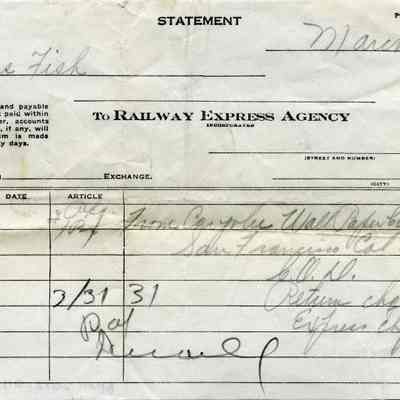 STATEMENT
March
Fish
and payable
paid within
er, accounts
, if any, will
m is made
y days.
To RAILWAY EXPRESS AGENCY
INCORPORATED
(STREET AND NUMBER)
EXCHANGE.
(CITY)
DATE ARTICLE
From Wall Paper
San Francisco Cal
C.O.D.
2/31 31 Return chg
Express ch